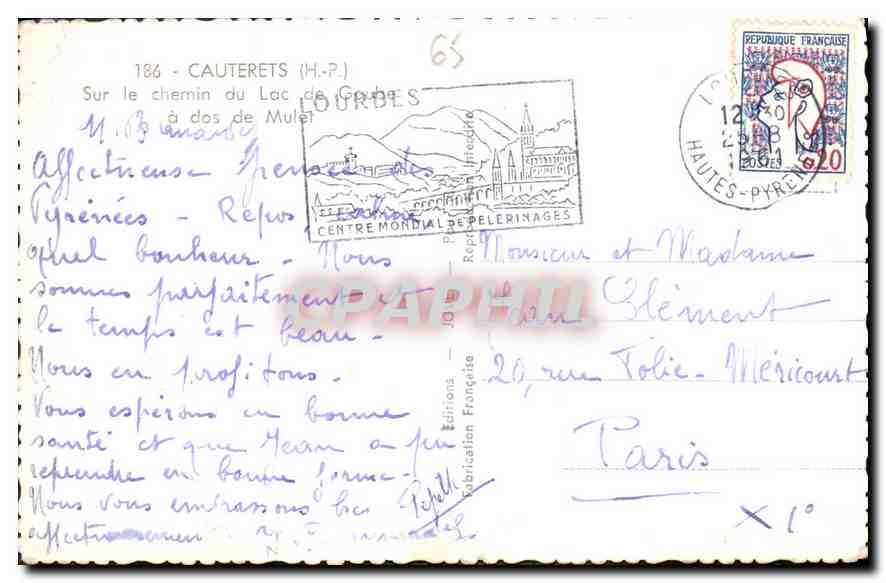 65
186 - CAUTERETS (H.-P.)
Sur le chemin du Lac de Gaube
à dos de Mulet
LOURDES
CENTRE MONDIAL DE PELERINAGES
REPUBLIQUE FRANÇAISE
POSTES 0,20
12 30
HAUTES-PYRENEES
Affectueuse pensée des
Pyrénées - Repos,
quel bonheur - Nous
sommes parfaitement et
le temps est beau -
Nous en profitons -
Vous espérons en bonne
santé et que Jean a pu
reprendre en bonne forme -
Nous vous embrassons bien
affectueusement
Editions - JOVE -
Fabrication Française
Reproduction Interdite
Monsieur et Madame
Jean Clément
20, rue Folie-Méricourt
Paris
X 1°
CPAPHIL